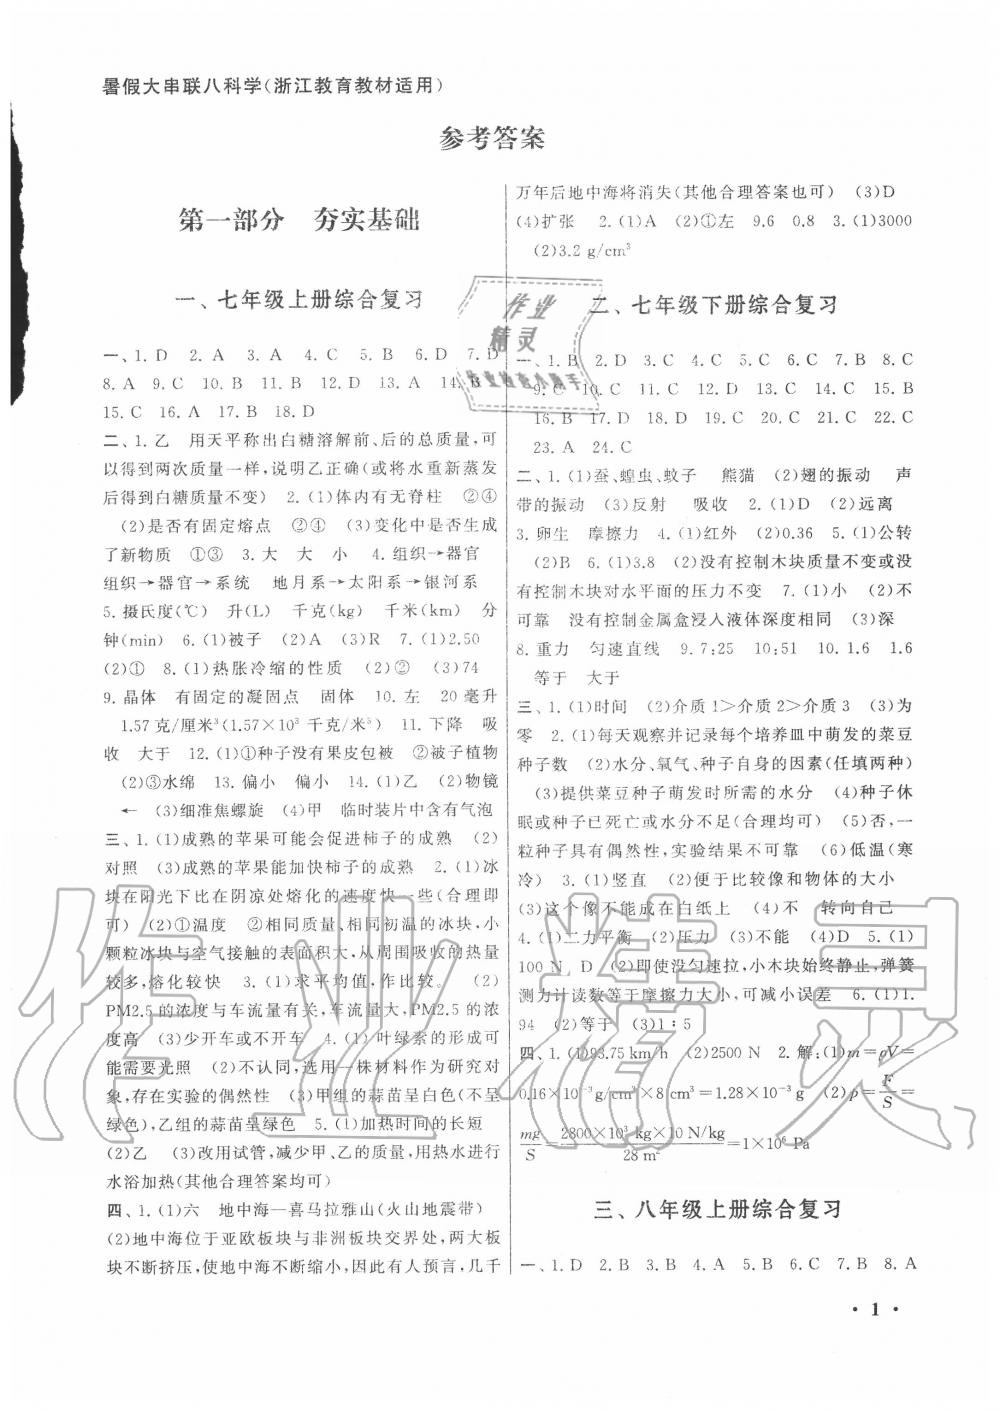 暑假大串联八科学(浙江教育教材适用)
参考答案
第一部分　夯实基础
一、七年级上册综合复习
一、1. D　2. A　3. A　4. C　5. B　6. D　7. D
8. A　9. C　10. B　11. B　12. D　13. A　14. B
15. C　16. A　17. B　18. D
二、1. 乙　用天平称出白糖溶解前、后的总质量,可
以得到两次质量一样,说明乙正确(或将水重新蒸发
后得到白糖质量不变)　2. (1)体内有无脊柱　②④
(2)是否有固定熔点　②④　(3)变化中是否生成
了新物质　①③　3. 大　大　小　4. 组织→器官
组织→器官→系统　地月系→太阳系→银河系
5. 摄氏度(℃)　升(L)　千克(kg)　千米(km)　分
钟(min)　6. (1)被子　(2)A　(3)R　7. (1)2.50
(2)①　8. (1)热胀冷缩的性质　(2)②　(3)74
9. 晶体　有固定的凝固点　固体　10. 左　20 毫升
1.57 克/厘米³(1.57×10³ 千克/米³)　11. 下降　吸
收　大于　12. (1)①种子没有果皮包被　②被子植物
(2)③水绵　13. 偏小　偏小　14. (1)乙　(2)物镜
←　(3)细准焦螺旋　(4)甲　临时装片中含有气泡
三、1. (1)成熟的苹果可能会促进柿子的成熟　(2)
对照　(3)成熟的苹果能加快柿子的成熟　2. (1)冰
块在阳光下比在阴凉处熔化的速度快一些(合理即
可)　(2)①温度　②相同质量、相同初温的冰块,小
颗粒冰块与空气接触的表面积大,从周围吸收的热量
较多,熔化较快　3. (1)求平均值,作比较。　(2)
PM2.5 的浓度与车流量有关,车流量大,PM2.5 的浓
度高　(3)少开车或不开车　4. (1)叶绿素的形成可
能需要光照　(2)不认同,选用一株材料作为研究对
象,存在实验的偶然性　(3)甲组的蒜苗呈白色(不呈
绿色),乙组的蒜苗呈绿色　5. (1)加热时间的长短
(2)乙　(3)改用试管,减少甲、乙的质量,用热水进行
水浴加热(其他合理答案均可)
四、1. (1)六　地中海—喜马拉雅山(火山地震带)
(2)地中海位于亚欧板块与非洲板块交界处,两大板
块不断挤压,使地中海不断缩小,因此有人预言,几千
万年后地中海将消失(其他合理答案也可)　(3)D
(4)扩张　2. (1)A　(2)①左　9.6　0.8　3. (1)3000
(2)3.2 g/cm³
二、七年级下册综合复习
一、1. B　2. D　3. C　4. C　5. C　6. C　7. B　8. C
9. C　10. C　11. D　12. D　13. C　14. C　15. B
16. B　17. B　18. D　19. D　20. C　21. C　22. C
23. A　24. C
二、1. (1)蚕、蝗虫、蚊子　熊猫　(2)翅的振动　声
带的振动　(3)反射　吸收　2. (1)D　(2)远离
3. 卵生　摩擦力　4. (1)红外　(2)0.36　5. (1)公转
(2)B　6. (1)3.8　(2)没有控制木块质量不变或没
有控制木块对水平面的压力不变　7. (1)小　(2)不
可靠　没有控制金属盒浸入液体深度相同　(3)深
8. 重力　匀速直线　9. 7:25　10:51　10. 1.6　1.6
等于　大于
三、1. (1)时间　(2)介质 1＞介质 2＞介质 3　(3)为
零　2. (1)每天观察并记录每个培养皿中萌发的菜豆
种子数　(2)水分、氧气、种子自身的因素(任填两种)
(3)提供菜豆种子萌发时所需的水分　(4)种子休
眠或种子已死亡或水分不足(合理均可)　(5)否,一
粒种子具有偶然性,实验结果不可靠　(6)低温(寒
冷)　3. (1)竖直　(2)便于比较像和物体的大小
(3)这个像不能成在白纸上　(4)不　转向自己
4. (1)二力平衡　(2)压力　(3)不能　(4)D　5. (1)
100 N　D　(2)即使没匀速拉,小木块始终静止,弹簧
测力计读数等于摩擦力大小,可减小误差　6. (1)1.
94　(2)等于　(3)1：5
四、1. (1)93.75 km/h　(2)2500 N　2. 解:(1)m=ρV=
0.16×10⁻³g/cm³×8 cm³=1.28×10⁻³ g　(2)p=F/S=
mg/S=2800×10³ kg×10 N/kg/28 m²=1×10⁶ Pa
三、八年级上册综合复习
一、1. D　2. B　3. B　4. A　5. B　6. C　7. B　8. A
· 1 ·
作业
精灵
作业精灵